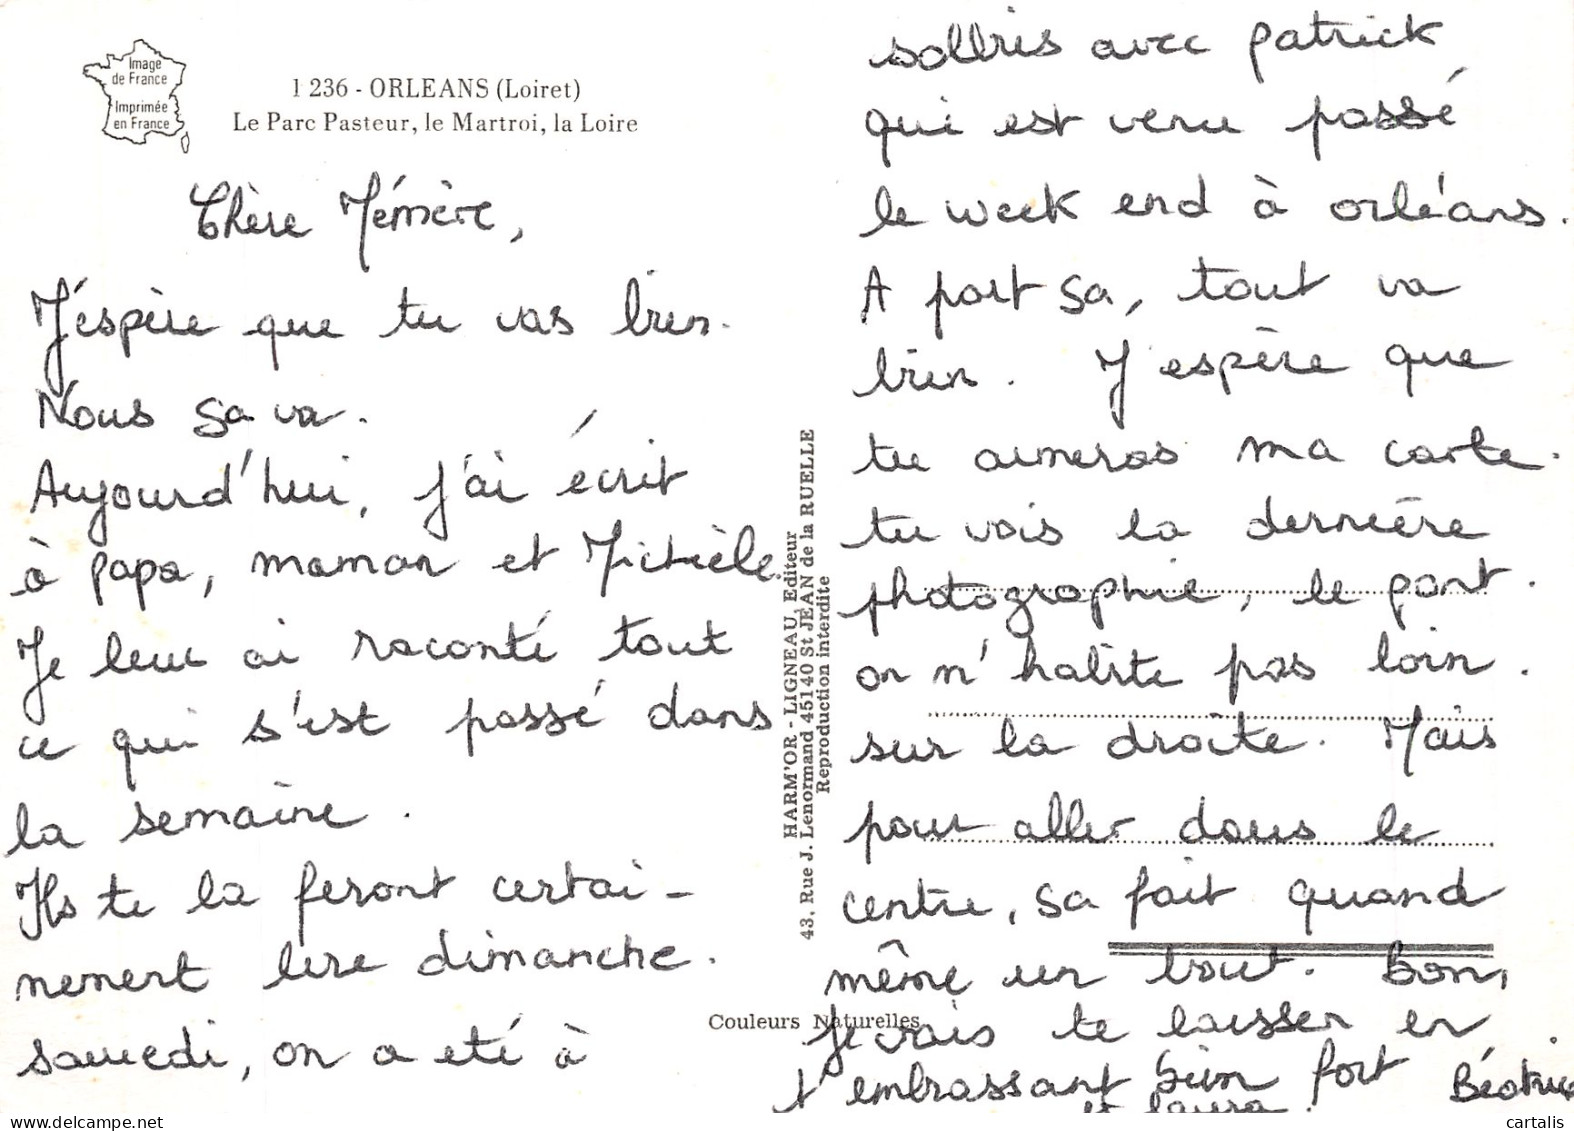 Image
de France
Imprimée
en France
1 236 - ORLEANS (Loiret)
Le Parc Pasteur, le Martroi, la Loire
Chère Mémère,
J'éspère que tu vas bien.
Nous sa va.
Aujourd'hui, j'ai écrit
à papa, maman et Michèle.
Je leur ai raconté tout
ce qui s'est passé dans
la semaine.
Ils te la feront certai-
nement lire dimanche.
samedi, on a été à
HARM'OR - LIGNEAU, Editeur
43, Rue J. Lenormand 45140 St JEAN de la RUELLE
Reproduction interdite
Couleurs Naturelles
salbris avec patrick
qui est venu passé
le week end à orléans.
A part sa, tout va
bien. J'espère que
tu aimeras ma carte.
tu vois la dernière
photographie, le pont.
on n'habite pas loin.
sur la droite. Mais
pour aller dans le
centre, sa fait quand
même un bout. Bon,
je vais te laisser en
t'embrassant bien fort. Béatrice
et laura.
cartalis